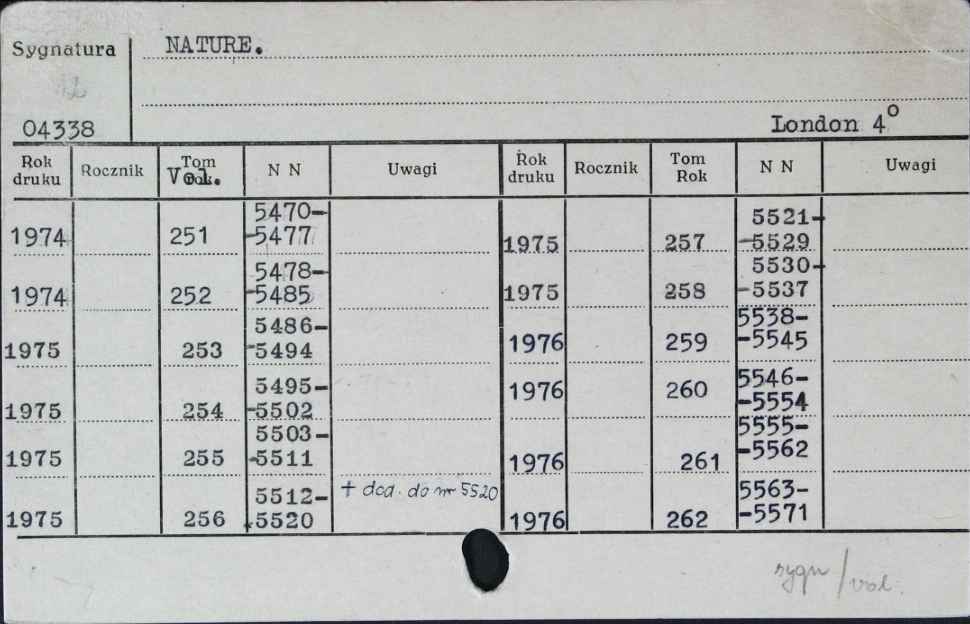 Sygnatura NATURE.
04338 London 4°
Rok druku Rocznik Tom Vol. N N Uwagi Rok druku Rocznik Tom Rok N N Uwagi
1974 251 5470-
-5477
1974 252 5478-
-5485
1975 253 5486-
-5494
1975 254 5495-
-5502
1975 255 5503-
-5511
1975 256 5512-
-5520 + dod. do nr 5520
1975 257 5521-
-5529
1975 258 5530-
-5537
1976 259 5538-
-5545
1976 260 5546-
-5554
1976 261 5555-
-5562
1976 262 5563-
-5571
sygn/vol.